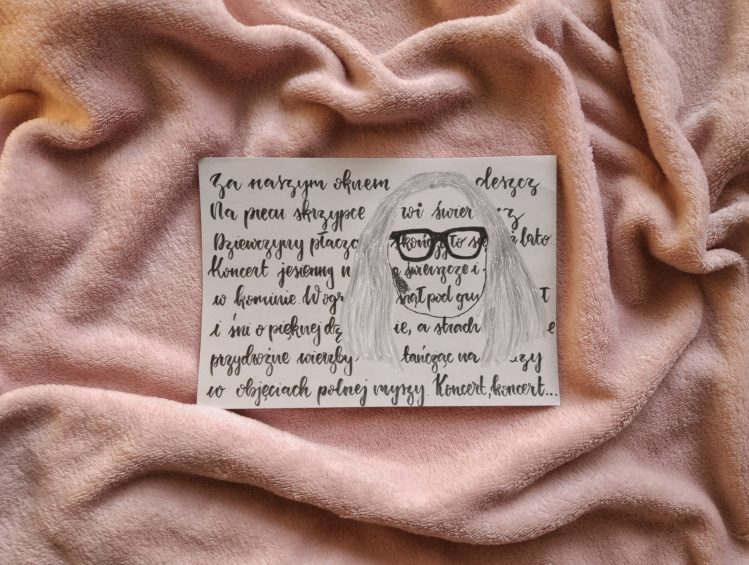 Za naszym oknem deszcz
Na piecu skrzypce wi świer z
Dziewczyny płaczą skończyło się lato
Koncert jesienny n świerszcze i
w kominie W ogr snął pod gru t
i śni o pięknej dz ie, a strach e
przydrożne wierzby tańcząc na zy
w objęciach polnej myszy. Koncert, koncert...